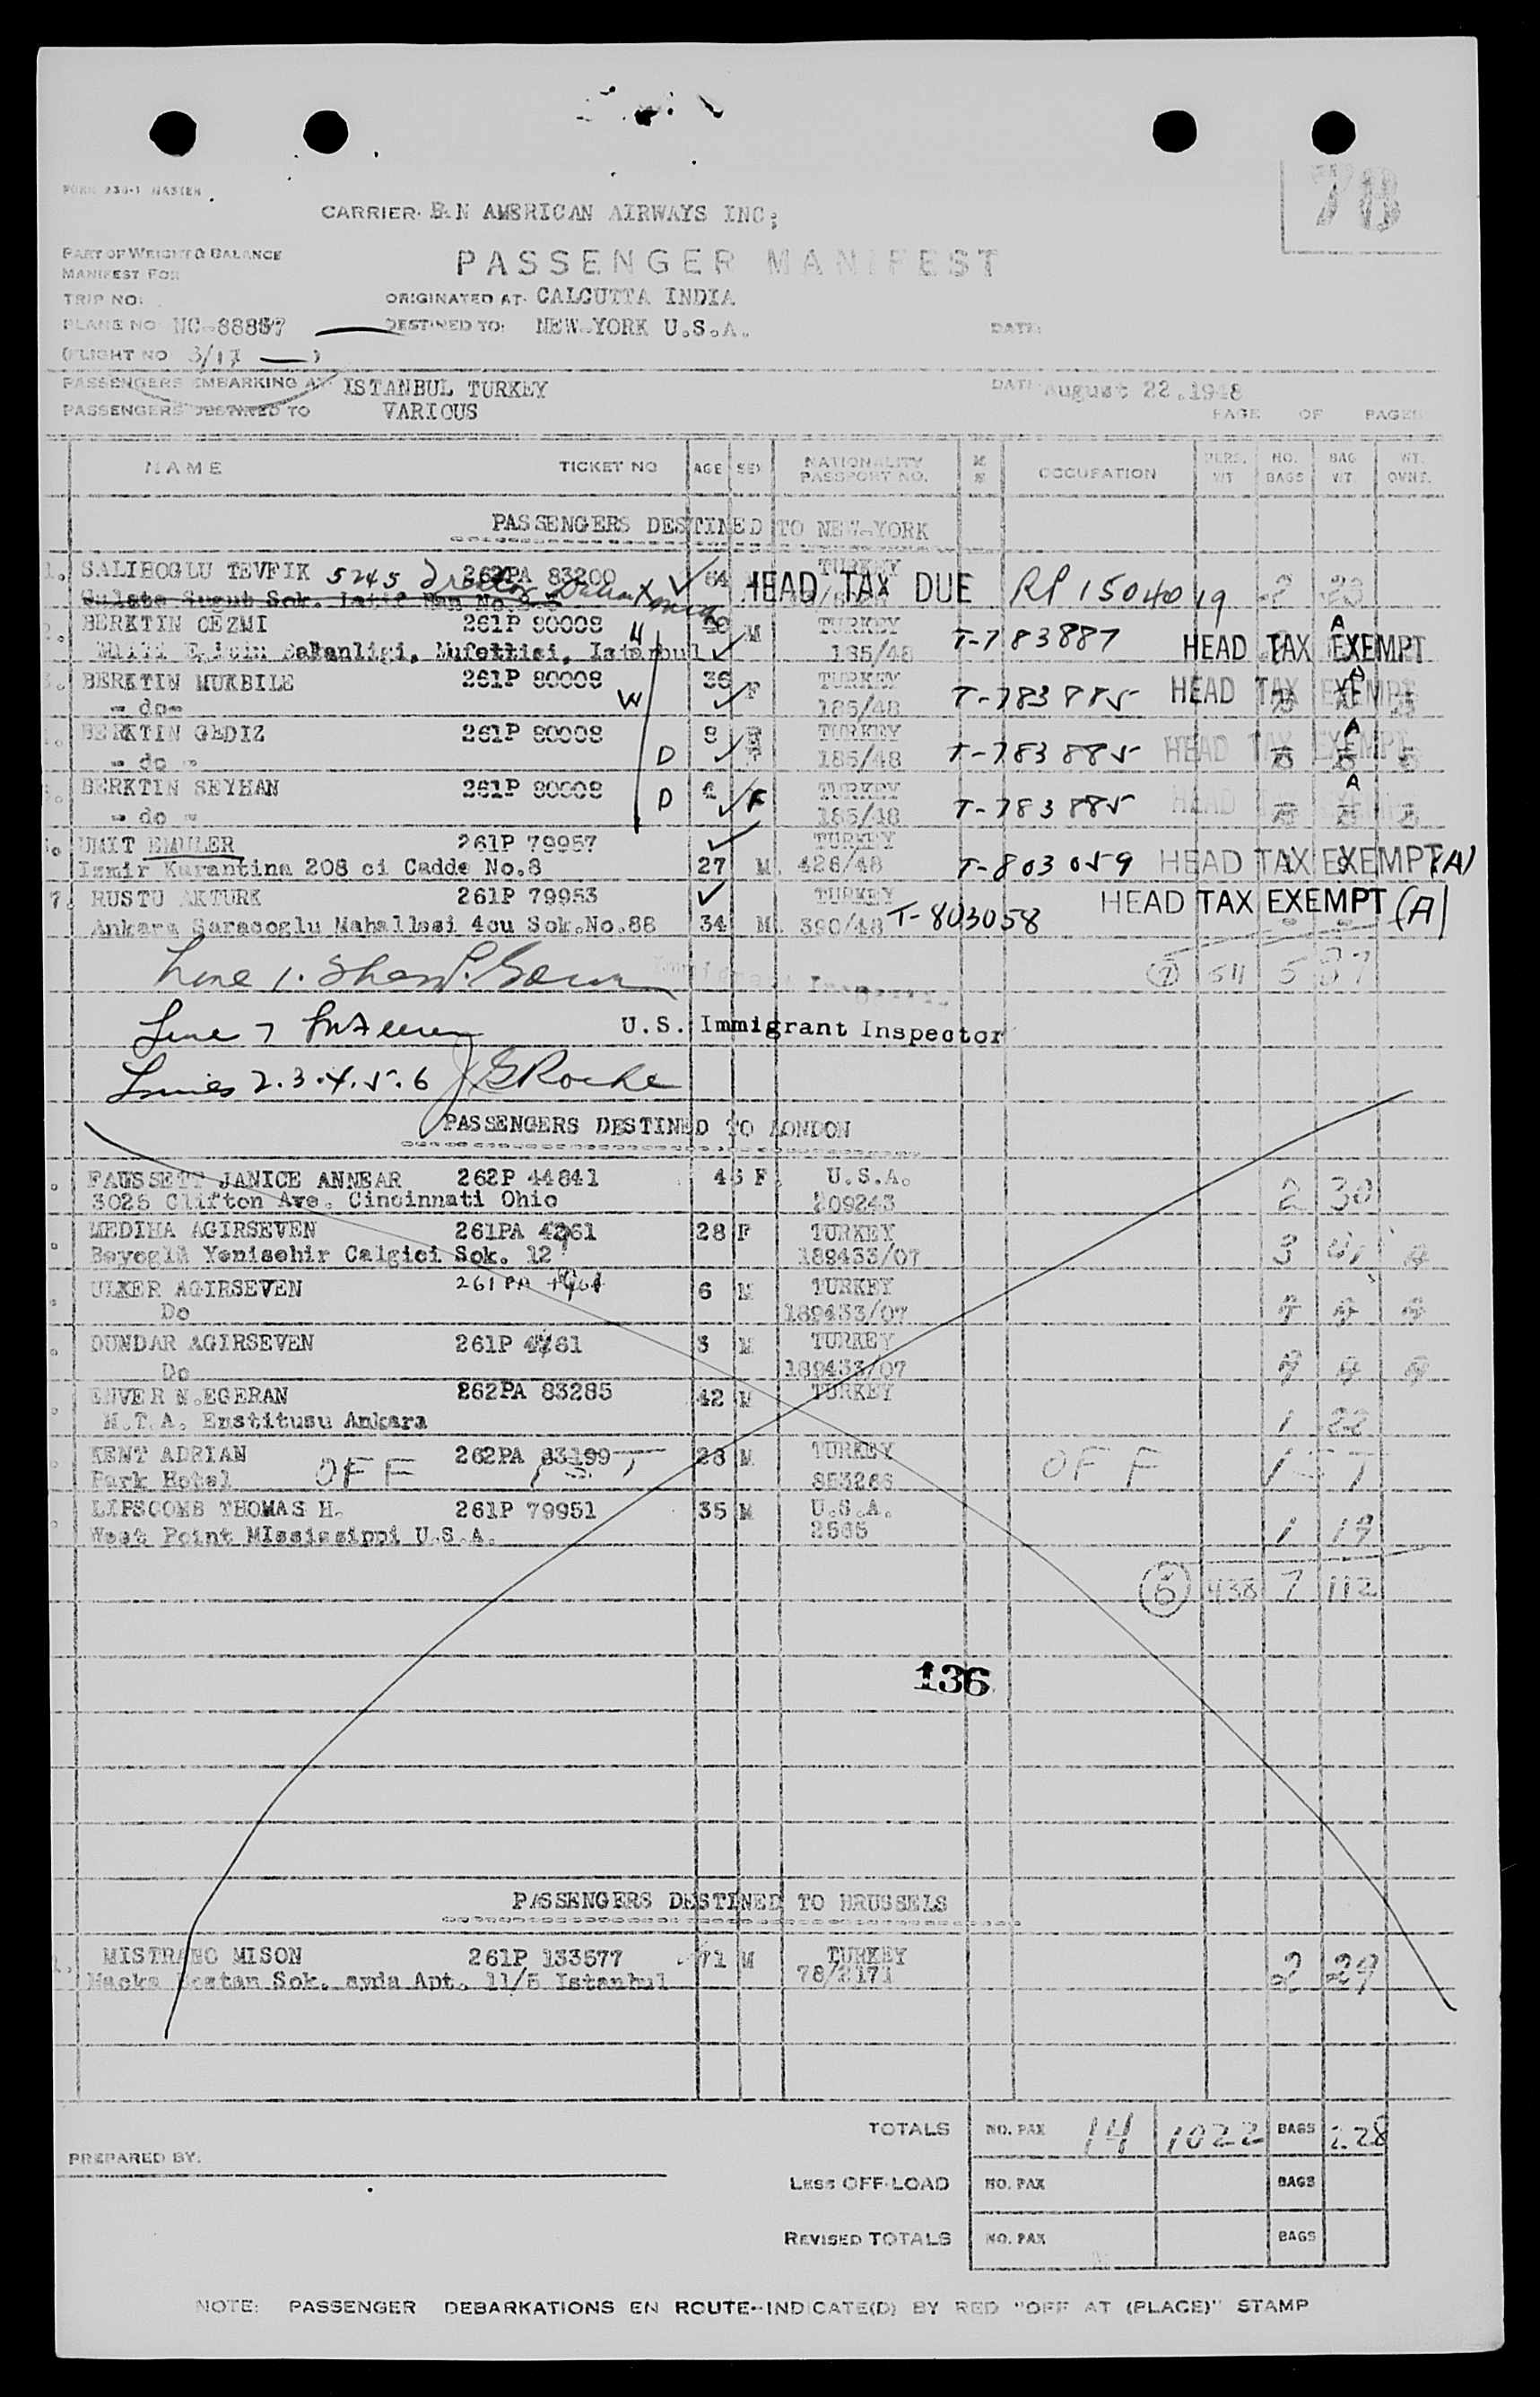 FORM 230-1 MASTER
78
CARRIER- PAN AMERICAN AIRWAYS INC;
PART OF WEIGHT & BALANCE
MANIFEST FOR
PASSENGER MANIFEST
TRIP NO:
ORIGINATED AT- CALCUTTA INDIA
PLANE NO NC-88857
DESTINED TO: NEW-YORK U.S.A.
DATE:
(FLIGHT NO 3/17 — )
PASSENGERS EMBARKING AT ISTANBUL TURKEY
DATE August 22.1948
PASSENGERS DESTINED TO VARIOUS
PAGE OF PAGES
NAME TICKET NO AGE SEX NATIONALITY PASSPORT NO. OCCUPATION PERS. WT NO. BAGS BAG WT WT. OVWT.
PASSENGERS DESTINED TO NEW-YORK
1. SALIHOGLU TEVFIK 5245 262PA 83200 64 TURKEY HEAD TAX DUE RP 15040 19 2 20
2. BERKTIN CEZMI 261P 80008 H 40 M TURKEY T-783887 HEAD TAX EXEMPT A
Milli Egitim Bakanligi, Mufettisi, Istanbul 185/48
3. BERKTIN MUKBILE 261P 80008 W 36 F TURKEY T-783885 HEAD TAX EXEMPT A
- do- 185/48
BERKTIN GEDIZ 261P 80008 D 8 F TURKEY T-783885 HEAD TAX EXEMPT A
- do - 185/48
BERKTIN SEYHAN 261P 80008 D 4 F TURKEY T-783885 HEAD A
- do - 185/48
UMIT EMULER 261P 79957 TURKEY
Izmir Karantina 208 ci Cadde No.8 27 M 426/48 T-803059 HEAD TAX EXEMPT (A)
7. RUSTU AKTURK 261P 79953 TURKEY HEAD TAX EXEMPT (A)
Ankara Saracoglu Mahallesi 4cu Sok.No.88 34 M 390/48 T-803058
Line 1. 7 511 5 87
Line 7 U.S. Immigrant Inspector
Lines 2.3.4.5.6 J G Roche
PASSENGERS DESTINED TO LONDON
FAUSSETT JANICE ANNEAR 262P 44841 45 F. U.S.A.
3025 Clifton Ave. Cincinnati Ohio 209243 2 30
MEDIHA AGIRSEVEN 261PA 4961 28 F TURKEY
Beyoglu Yenisehir Calgici Sok. 12 189433/07 3
ULKER AGIRSEVEN 261PA 4961 6 M TURKEY
Do 189433/07
DUNDAR AGIRSEVEN 261P 4961 3 M TURKEY
Do 189433/07
ENVER N.EGERAN 262PA 83285 42 M TURKEY
M.T.A. Enstitusu Ankara 1 22
KENT ADRIAN 262PA 83199 28 M TURKEY
Park Hotel OFF IST 853286 OFF IST
LIPSCOMB THOMAS H. 261P 79951 35 M U.S.A.
West Point MIssissippi U.S.A. 2565 1 19
6 438 7 112
136
PASSENGERS DESTINED TO BRUSSELS
1. MISTRAHO MISON 261P 133577 71 M TURKEY
Macka Bostan Sok. ayda Apt. 11/5 Istanbul 78/2171 2 29
TOTALS NO. PAX 14 1022 BAGS 228
PREPARED BY:
LESS OFF-LOAD NO. PAX BAGS
REVISED TOTALS NO. PAX BAGS
NOTE: PASSENGER DEBARKATIONS EN ROUTE--INDICATE(D) BY RED "OFF AT (PLACE)" STAMP